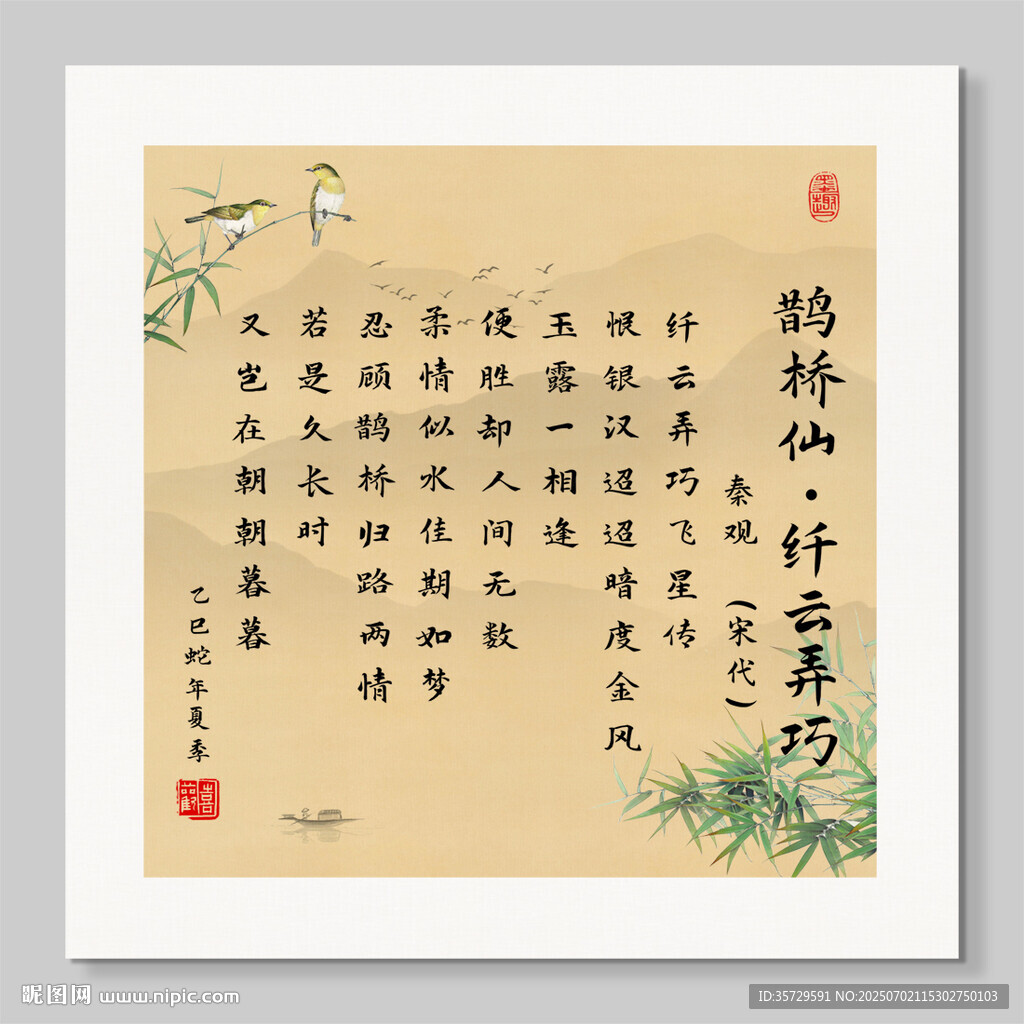 墨趣
鹊桥仙·纤云弄巧
秦观（宋代）
纤云弄巧飞星传
恨银汉迢迢暗度金风
玉露一相逢
便胜却人间无数
柔情似水佳期如梦
忍顾鹊桥归路两情
若是久长时
又岂在朝朝暮暮
乙巳蛇年夏季
昵图网 www.nipic.com
ID:35729591 NO:20250702115302750103